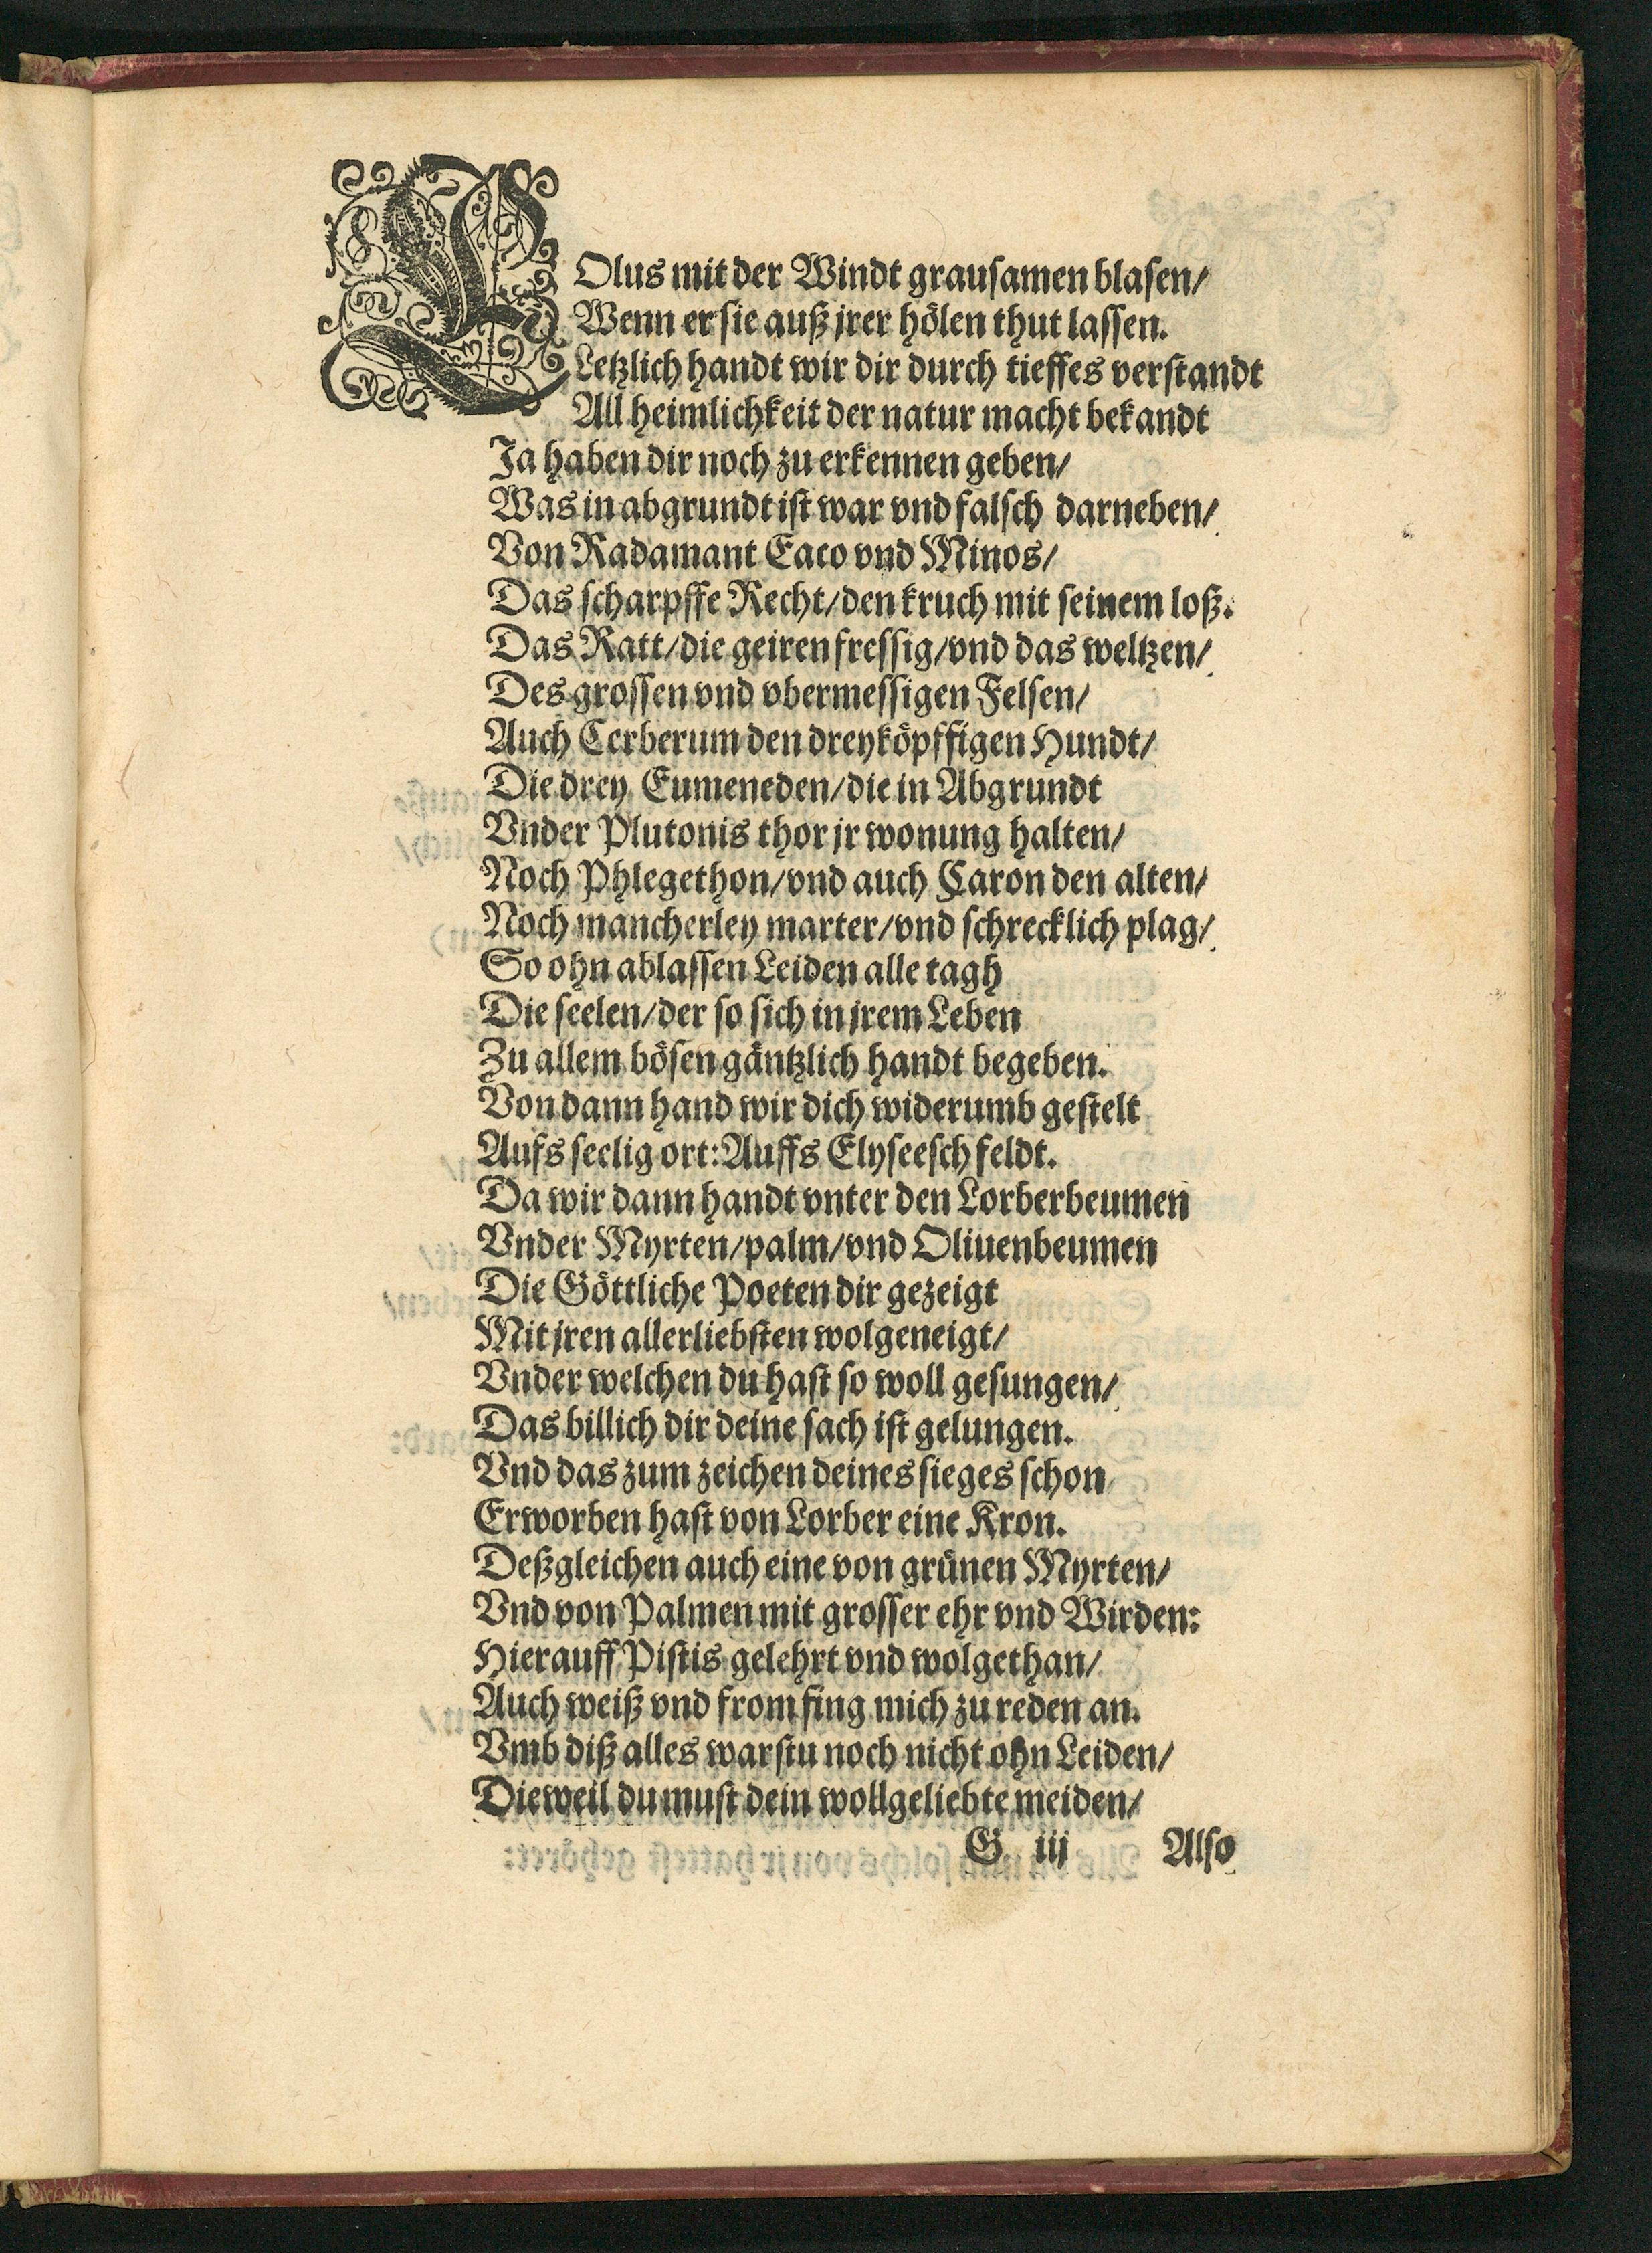 EOlus mit der Windt grausamen blasen/
Wenn er sie auß jrer hölen thut lassen.
Letzlich handt wir dir durch tieffes verstandt
All heimlichkeit der natur macht bekandt
Ja haben dir noch zu erkennen geben/
Was in abgrundt ist war vnd falsch darneben/
Von Radamant Eaco vnd Minos/
Das scharpffe Recht/den kruch mit seinem loß.
Das Ratt/die geiren fressig/vnd das weltzen/
Des grossen vnd vbermessigen Felsen/
Auch Cerberum den dreyköpffigen Hundt/
Die drey Eumeneden/die in Abgrundt
Vnder Plutonis thor jr wonung halten/
Noch Phlegethon/vnd auch Caron den alten/
Noch mancherley marter/vnd schrecklich plag/
So ohn ablassen Leiden alle tagh
Die seelen/der so sich in jrem Leben
Zu allem bösen gäntzlich handt begeben.
Von dann hand wir dich widerumb gestelt
Aufs seelig ort: Auffs Elyseesch feldt.
Da wir dann handt vnter den Lorberbeumen
Vnder Myrten/palm/vnd Oliuenbeumen
Die Göttliche Poeten dir gezeigt
Mit jren allerliebsten wolgeneigt/
Vnder welchen du hast so woll gesungen/
Das billich dir deine sach ist gelungen.
Vnd das zum zeichen deines sieges schon
Erworben hast von Lorber eine Kron.
Deßgleichen auch eine von grünen Myrten/
Vnd von Palmen mit grosser ehr vnd Wirden:
Hierauff Pistis gelehrt vnd wolgethan/
Auch weiß vnd from fing mich zu reden an.
Vmb diß alles warstu noch nicht ohn Leiden/
Dieweil du must dein wollgeliebte meiden/
G iij Also